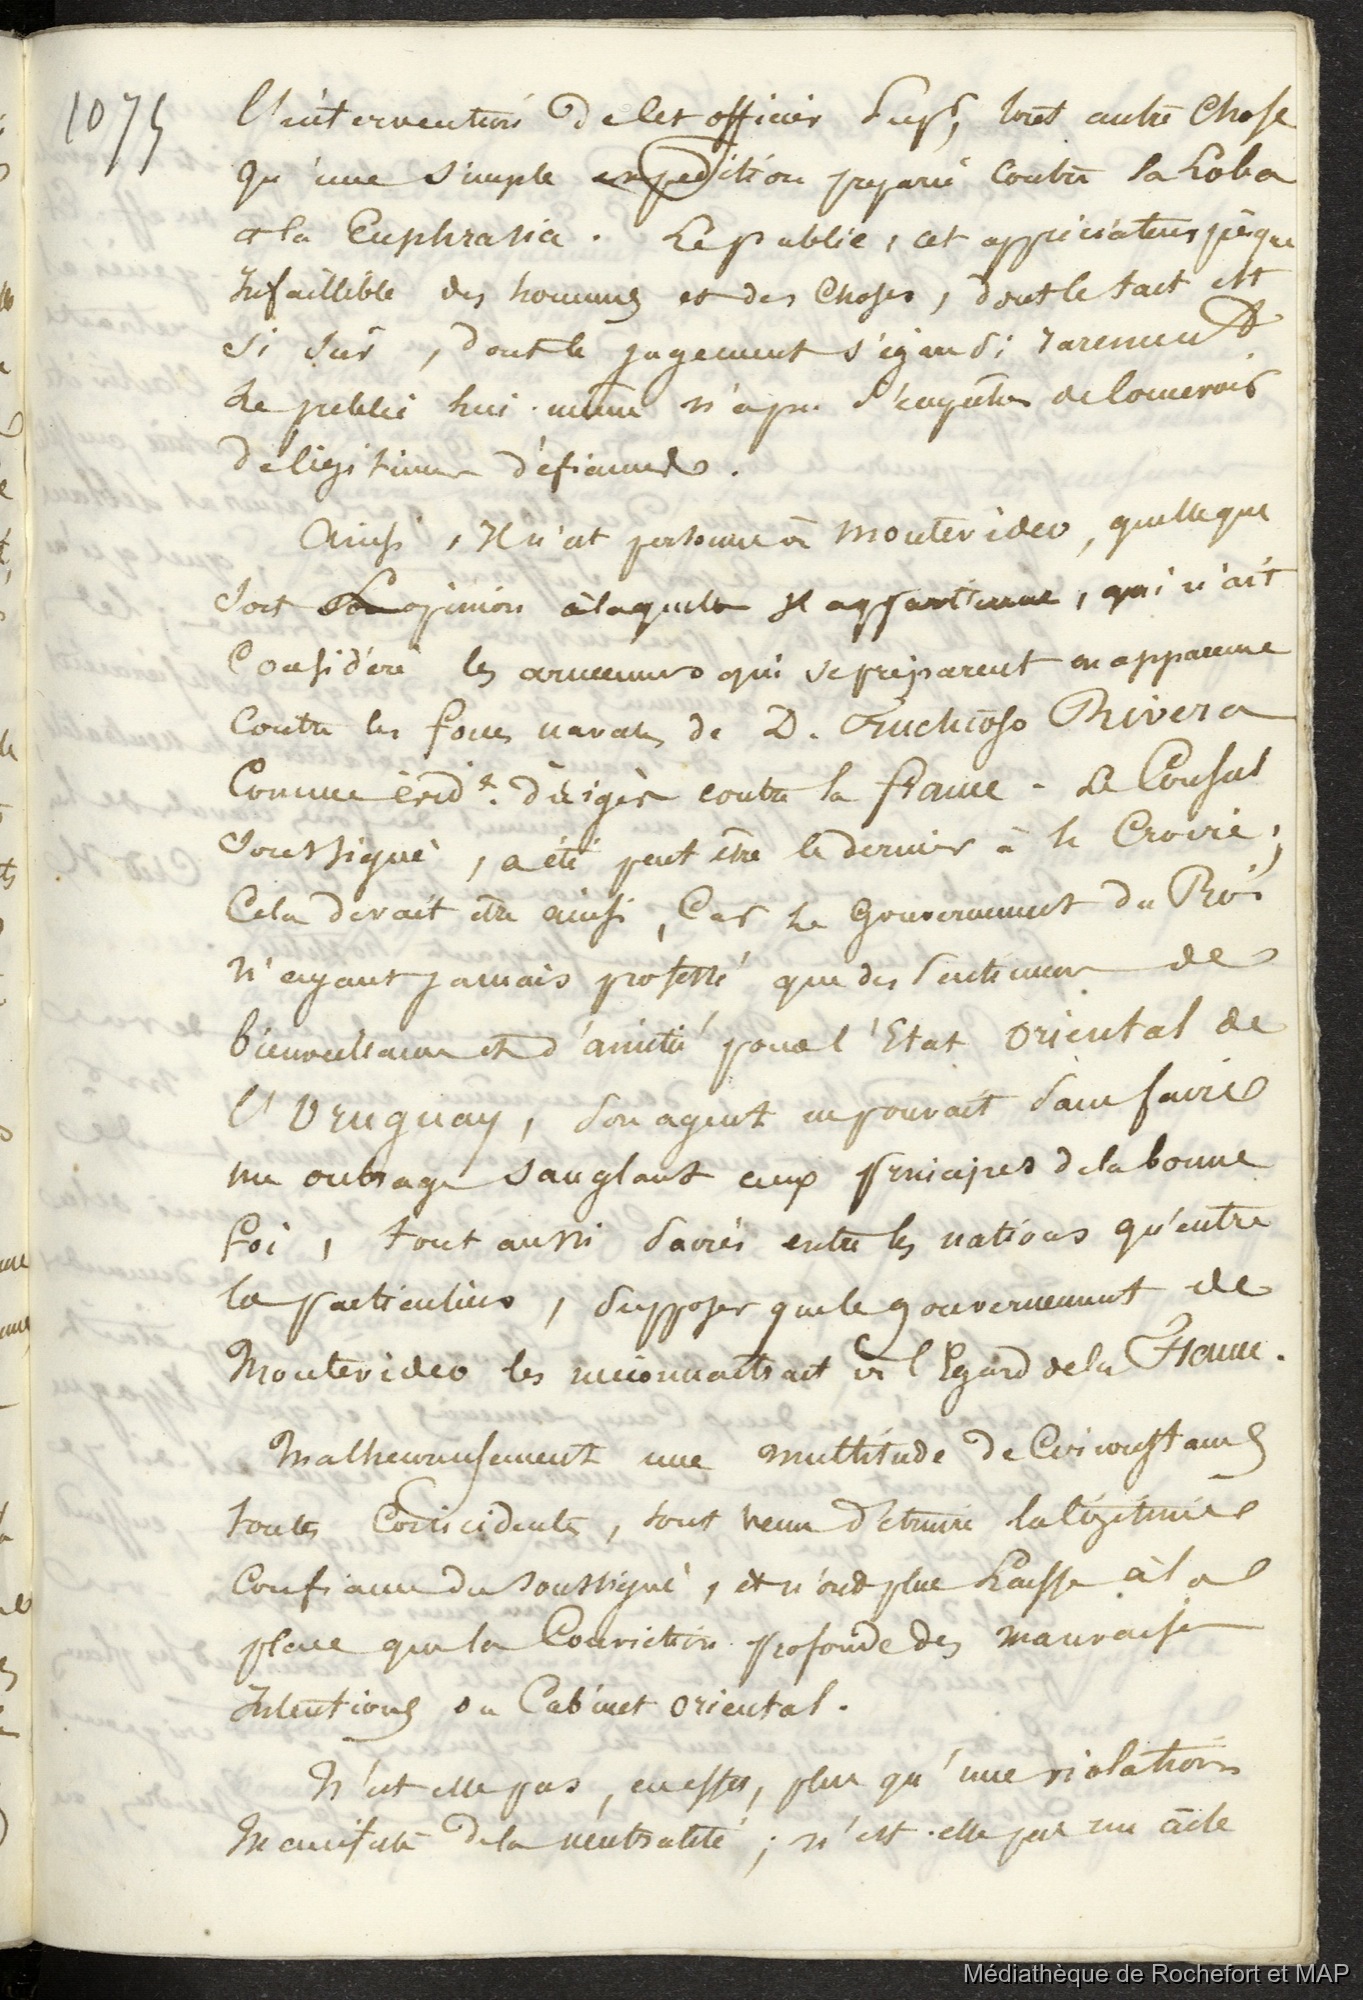 1075
l'intervention de cet officier supr, tout autre chose
qu'une simple expédition préparée contre la Loba
et la Euphrasia. Le public, cet appréciateur presque
infaillible des hommes et des choses, dont le tact est
si sûr, dont le jugement s'égare si rarement
Le public lui-même n'a pu s'empêcher de concevoir
de légitimes défiances.
Ainsi, il n'est personne à Montevideo, quelle que
soit l'opinion à laquelle il appartienne, qui n'ait
considéré les armemens qui se préparent en apparence
contre les forces navales de D. Fruchtoso Rivera
comme évidt. dirigés contre la france. Le Consul
soussigné, a été peut être le dernier à le croire;
Cela devait être ainsi, car le gouvernement du Roi
n'ayant jamais professé que des sentimens de
bienveillance et d'amitié pour l'Etat oriental de
l'Uruguay, son agent ne pouvait sans faire
un outrage sanglant aux principes de la bonne
foi, tout aussi sacrés entre les nations qu'entre
les particuliers, supposer que le gouvernement de
Montevideo les méconnaitrait à l'Egard de la France.
Malheureusement une multitude de circonstances
toutes coïncidentes, sont venues détruire la légitime
confiance du soussigné, et n'ont plus laissé à la
place que la conviction profonde des mauvaises
intentions du Cabinet oriental.
N'est elle pas, en effet, plus qu'une violation
manifeste de la neutralité; n'est-elle pas un acte
Médiathèque de Rochefort et MAP